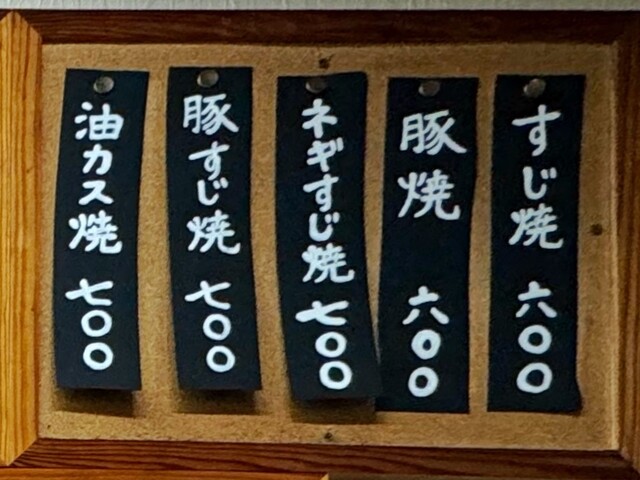 すじ焼 六〇〇
豚焼 六〇〇
ネギすじ焼 七〇〇
豚すじ焼 七〇〇
油カス焼 七〇〇